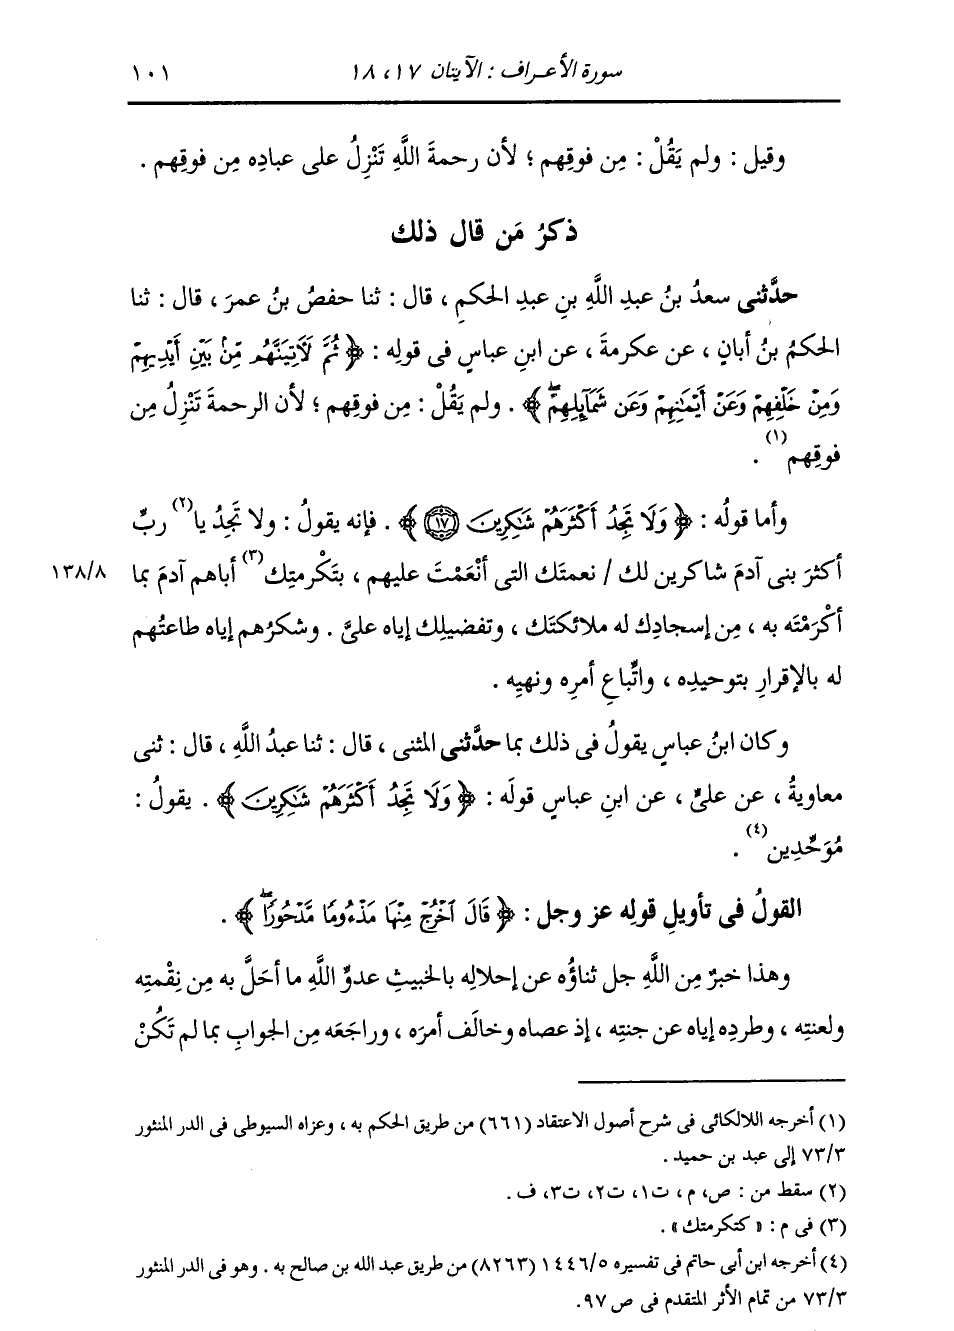 سورة الأعراف : الآيتان ١٧، ١٨ ١٠١
وقيل : ولم يَقُلْ : مِن فوقِهم ؛ لأن رحمةَ اللَّهِ تَنْزِلُ على عبادِه مِن فوقِهم .
ذكرُ مَن قال ذلك
حدَّثنى سعدُ بنُ عبدِ اللَّهِ بنِ عبدِ الحكمِ ، قال : ثنا حفصُ بنُ عمرَ ، قال : ثنا
الحكمُ بنُ أبانٍ ، عن عكرمةَ ، عن ابنِ عباسٍ فى قولِه : ﴿ ثُمَّ لَآتِيَنَّهُم مِّنۢ بَيْنِ أَيْدِيهِمْ
وَمِنْ خَلْفِهِمْ وَعَنْ أَيْمَٰنِهِمْ وَعَن شَمَآئِلِهِمْۖ ﴾ . ولم يَقُلْ : مِن فوقِهم ؛ لأن الرحمةَ تَنْزِلُ مِن
فوقِهم(١) .
وأما قولُه : ﴿ وَلَا تَجِدُ أَكْثَرَهُمْ شَٰكِرِينَ ۝١٧ ﴾ . فإنه يقولُ : ولا تَجِدُ يا(٢) ربِّ
أكثرَ بنى آدمَ شاكرين لك / نعمتَك التى أنْعَمْتَ عليهم ، بتَكْرمتِك(٣) أباهم آدمَ بما ١٣٨/٨
أكْرَمْتَه به ، مِن إسجادِك له ملائكتَك ، وتفضيلِك إياه علىَّ . وشكرُهم إياه طاعتُهم
له بالإقرارِ بتوحيدِه ، واتِّباعِ أمرِه ونهيِه .
وكان ابنُ عباسٍ يقولُ فى ذلك بما حدَّثنى المثنى ، قال : ثنا عبدُ اللَّهِ ، قال : ثنى
معاويةُ ، عن علىٍّ ، عن ابنِ عباسٍ قولَه : ﴿ وَلَا تَجِدُ أَكْثَرَهُمْ شَٰكِرِينَ ﴾ . يقولُ :
مُوَحِّدِين(٤) .
القولُ فى تأويلِ قولِه عز وجل : ﴿ قَالَ ٱخْرُجْ مِنْهَا مَذْءُومًا مَّدْحُورًاۖ ﴾ .
وهذا خبرٌ مِن اللَّهِ جل ثناؤُه عن إحلالِه بالخبيثِ عدوِّ اللَّهِ ما أحَلَّ به مِن نِقْمتِه
ولعنتِه ، وطردِه إياه عن جنتِه ، إذ عصاه وخالَف أمرَه ، وراجَعَه مِن الجوابِ بما لم تَكُنْ
(١) أخرجه اللالكائى فى شرح أصول الاعتقاد (٦٦١) من طريق الحكم به ، وعزاه السيوطى فى الدر المنثور
٧٣/٣ إلى عبد بن حميد .
(٢) سقط من : ص، م ، ت١، ت٢، ت٣، ف .
(٣) فى م : « كتكرمتك » .
(٤) أخرجه ابن أبى حاتم فى تفسيره ١٤٤٦/٥ (٨٢٦٣) من طريق عبد الله بن صالح به . وهو فى الدر المنثور
٧٣/٣ من تمام الأثر المتقدم فى ص ٩٧.